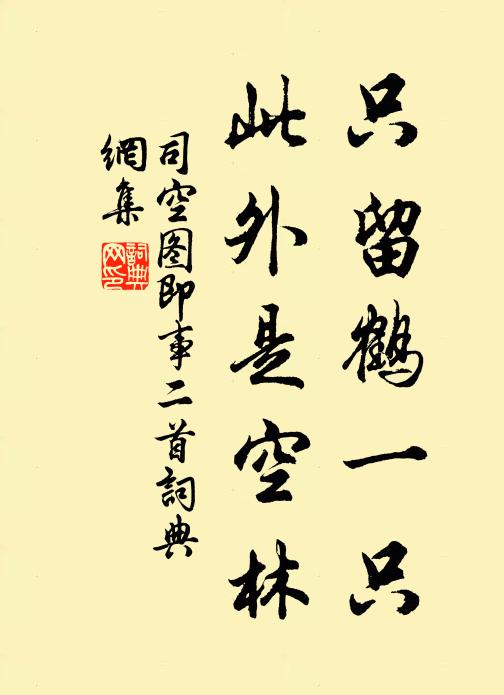 只留鶴一只
此外是空林
司空图即事二首詞典
網集
詞典网印